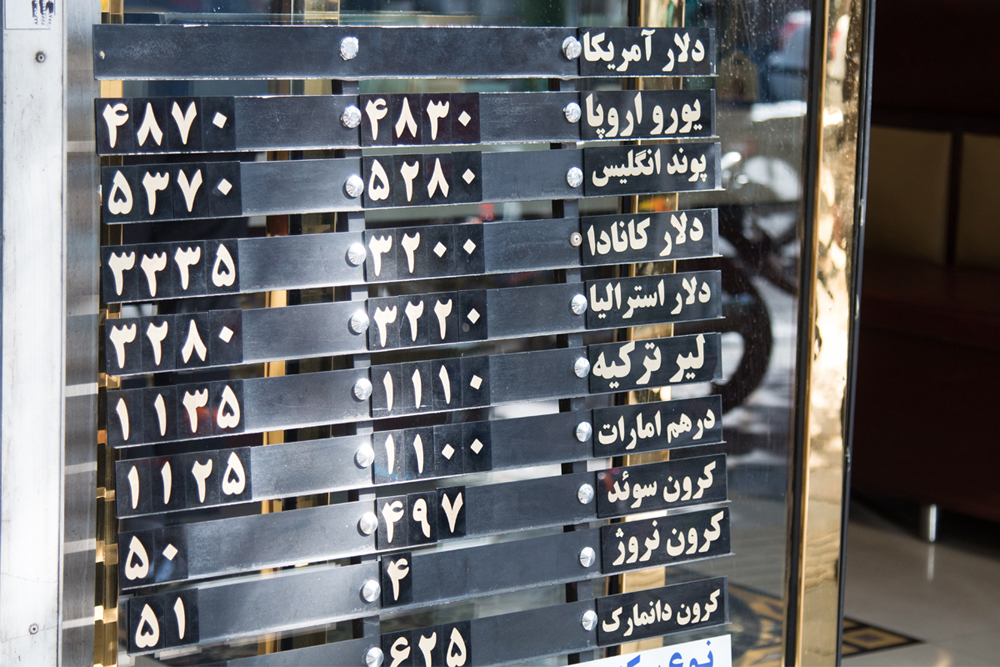 دلار آمریکا
یورو اروپا ۴۸۳۰ ۴۸۷۰
پوند انگلیس ۵۲۸۰ ۵۳۷۰
دلار کانادا ۳۲۰۰ ۳۳۳۵
دلار استرالیا ۳۲۲۰ ۳۲۸۰
لیر ترکیه ۱۱۱۰ ۱۱۳۵
درهم امارات ۱۱۰۰ ۱۱۲۵
کرون سوئد ۴۹۷ ۵۰
کرون نروژ ۴ ۵۱
کرون دانمارک ۶۲۵